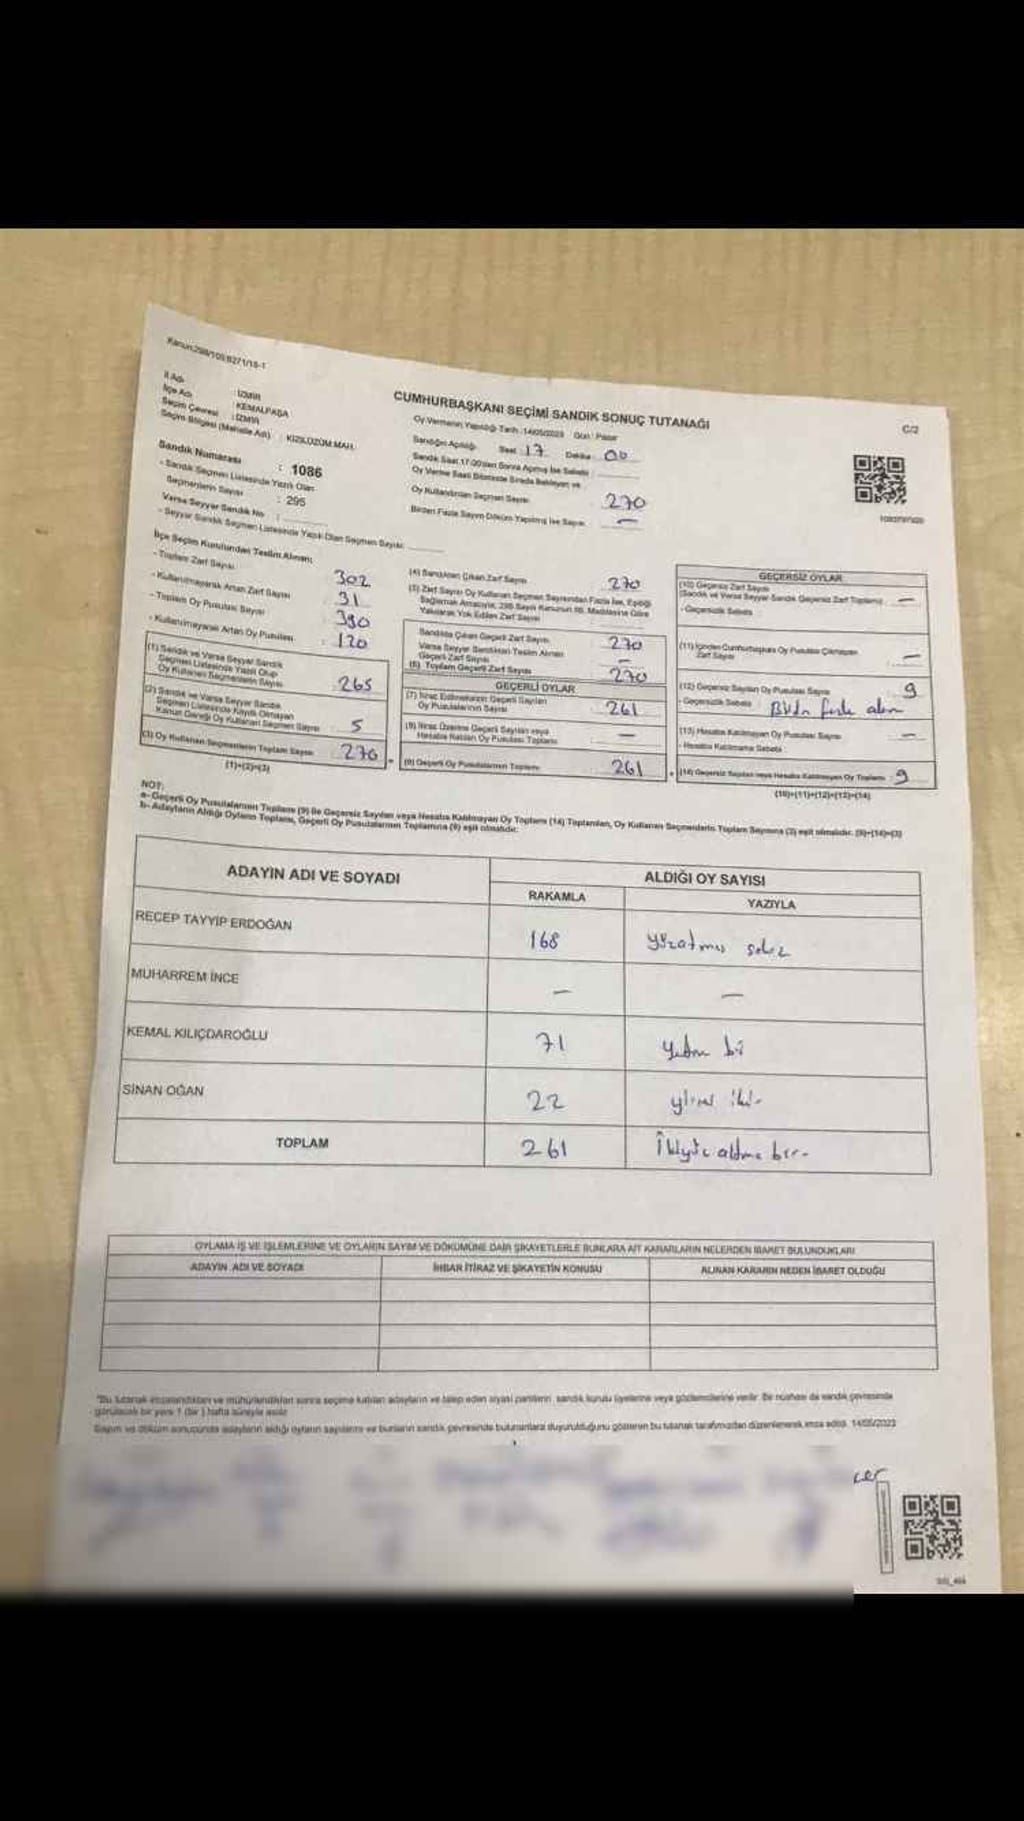 İl Adı : İZMİR
İlçe Adı : KEMALPAŞA
Seçim Çevresi : İZMİR
Seçim Bölgesi (Mahalle Adı) : KIZILÜZÜM MAH.
Sandık Numarası : 1086
- Sandık Seçmen Listesinde Yazılı Olan
Seçmenlerin Sayısı : 295
Varsa Seyyar Sandık No :
- Seyyar Sandık Seçmen Listesinde Yazılı Olan Seçmen Sayısı:
CUMHURBAŞKANI SEÇİMİ SANDIK SONUÇ TUTANAĞI
C/2
Oy Vermenin Yapıldığı Tarih : 14/05/2023 Gün : Pazar
Sandığın Açıldığı Saat : 17 Dakika : 00
Sandık Saat 17:00'den Sonra Açılmış İse Sebebi :
Oy Verme Saati Bitiminde Sırada Bekleyen ve
Oy Kullandırılan Seçmen Sayısı 270
Birden Fazla Sayım Döküm Yapılmış İse Sayısı —
İlçe Seçim Kurulundan Teslim Alınan;
- Toplam Zarf Sayısı : 302
- Kullanılmayarak Artan Zarf Sayısı : 31
- Toplam Oy Pusulası Sayısı : 390
- Kullanılmayarak Artan Oy Pusulası : 120
(1) Sandık ve Varsa Seyyar Sandık
Seçmen Listesinde Yazılı Olup
Oy Kullanan Seçmenlerin Sayısı : 265
(2) Sandık ve Varsa Seyyar Sandık
Seçmen Listesinde Kayıtlı Olmayan
Kanun Gereği Oy Kullanan Seçmen Sayısı : 5
(3) Oy Kullanan Seçmenlerin Toplam Sayısı : 270
(1)+(2)=(3)
(4) Sandıktan Çıkan Zarf Sayısı : 270
(5) Zarf Sayısı Oy Kullanan Seçmen Sayısından Fazla İse, Eşitliği
Sağlamak Amacıyla, 298 Sayılı Kanunun 98. Maddesine Göre
Yakılarak Yok Edilen Zarf Sayısı
Sandıkta Çıkan Geçerli Zarf Sayısı 270
Varsa Seyyar Sandıktan Teslim Alınan
Geçerli Zarf Sayısı —
(6) Toplam Geçerli Zarf Sayısı 270
GEÇERLİ OYLAR
(7) İtiraz Edilmeksizin Geçerli Sayılan
Oy Pusulalarının Sayısı : 261
(8) İtiraz Üzerine Geçerli Sayılan veya
Hesaba Katılan Oy Pusulası Toplamı : —
(9) Geçerli Oy Pusulalarının Toplamı : 261
GEÇERSİZ OYLAR
(10) Geçersiz Zarf Sayısı
(Sandık ve Varsa Seyyar Sandık Geçersiz Zarf Toplamı) : —
- Geçersizlik Sebebi :
(11) İçinden Cumhurbaşkanı Oy Pusulası Çıkmayan
Zarf Sayısı : —
(12) Geçersiz Sayılan Oy Pusulası Sayısı : 9
- Geçersizlik Sebebi :
(13) Hesaba Katılmayan Oy Pusulası Sayısı : —
- Hesaba Katılmama Sebebi :
(14) Geçersiz Sayılan veya Hesaba Katılmayan Oy Toplamı : 9
(10)+(11)+(12)+(13)=(14)
NOT:
a- Geçerli Oy Pusulalarının Toplamı (9) ile Geçersiz Sayılan veya Hesaba Katılmayan Oy Toplamı (14) Toplamları, Oy Kullanan Seçmenlerin Toplam Sayısına (3) eşit olmalıdır. (9)+(14)=(3)
b- Adayların Aldığı Oyların Toplamı, Geçerli Oy Pusulalarının Toplamına (9) eşit olmalıdır.
ADAYIN ADI VE SOYADI
ALDIĞI OY SAYISI
RAKAMLA YAZIYLA
RECEP TAYYİP ERDOĞAN 168 yüzatmış sekiz
MUHARREM İNCE — —
KEMAL KILIÇDAROĞLU 71 yetmiş bir
SİNAN OĞAN 22 yirmi iki
TOPLAM 261 İkiyüz altmış bir
OYLAMA İŞ VE İŞLEMLERİNE VE OYLARIN SAYIM VE DÖKÜMÜNE DAİR ŞİKAYETLERLE BUNLARA AİT KARARLARIN NELERDEN İBARET BULUNDUKLARI
ADAYIN ADI VE SOYADI İHBAR İTİRAZ VE ŞİKAYETİN KONUSU ALINAN KARARIN NEDEN İBARET OLDUĞU
"Bu tutanak imzalandıktan ve mühürlendikten sonra seçime katılan adayların ve talep eden siyasi partilerin sandık kurulu üyelerine veya gözlemcilerine verilir. Bir nüshası da sandık çevresinde
görülecek bir yere 1 (bir ) hafta süreyle asılır.
Sayım ve döküm sonucunda adayların aldığı oyların sayılarını ve bunların sandık çevresinde bulunanlara duyurulduğunu gösteren bu tutanak tarafımızdan düzenlenerek imza edildi. 14/05/2023